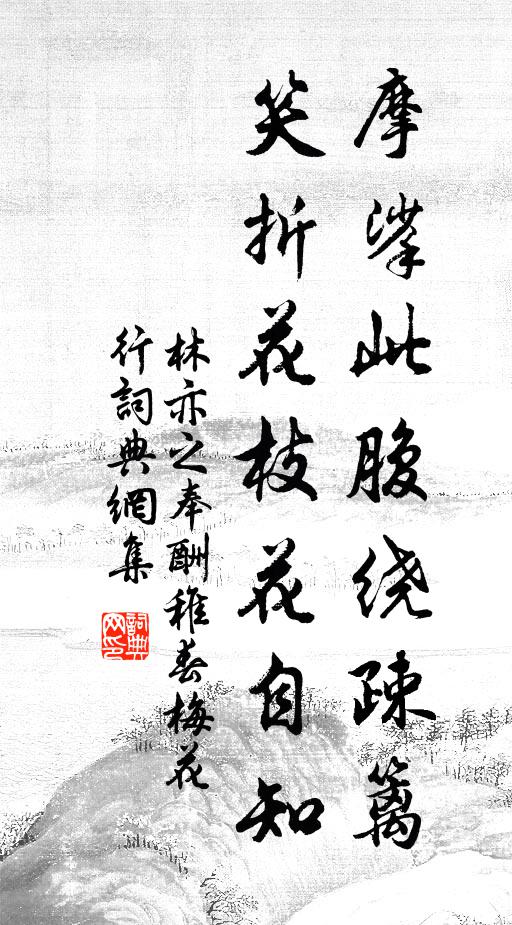 摩挲此腹绕疎篱
笑折花枝花自知
林亦之奉酬稚春梅花
行詞典網集
詞典
网印